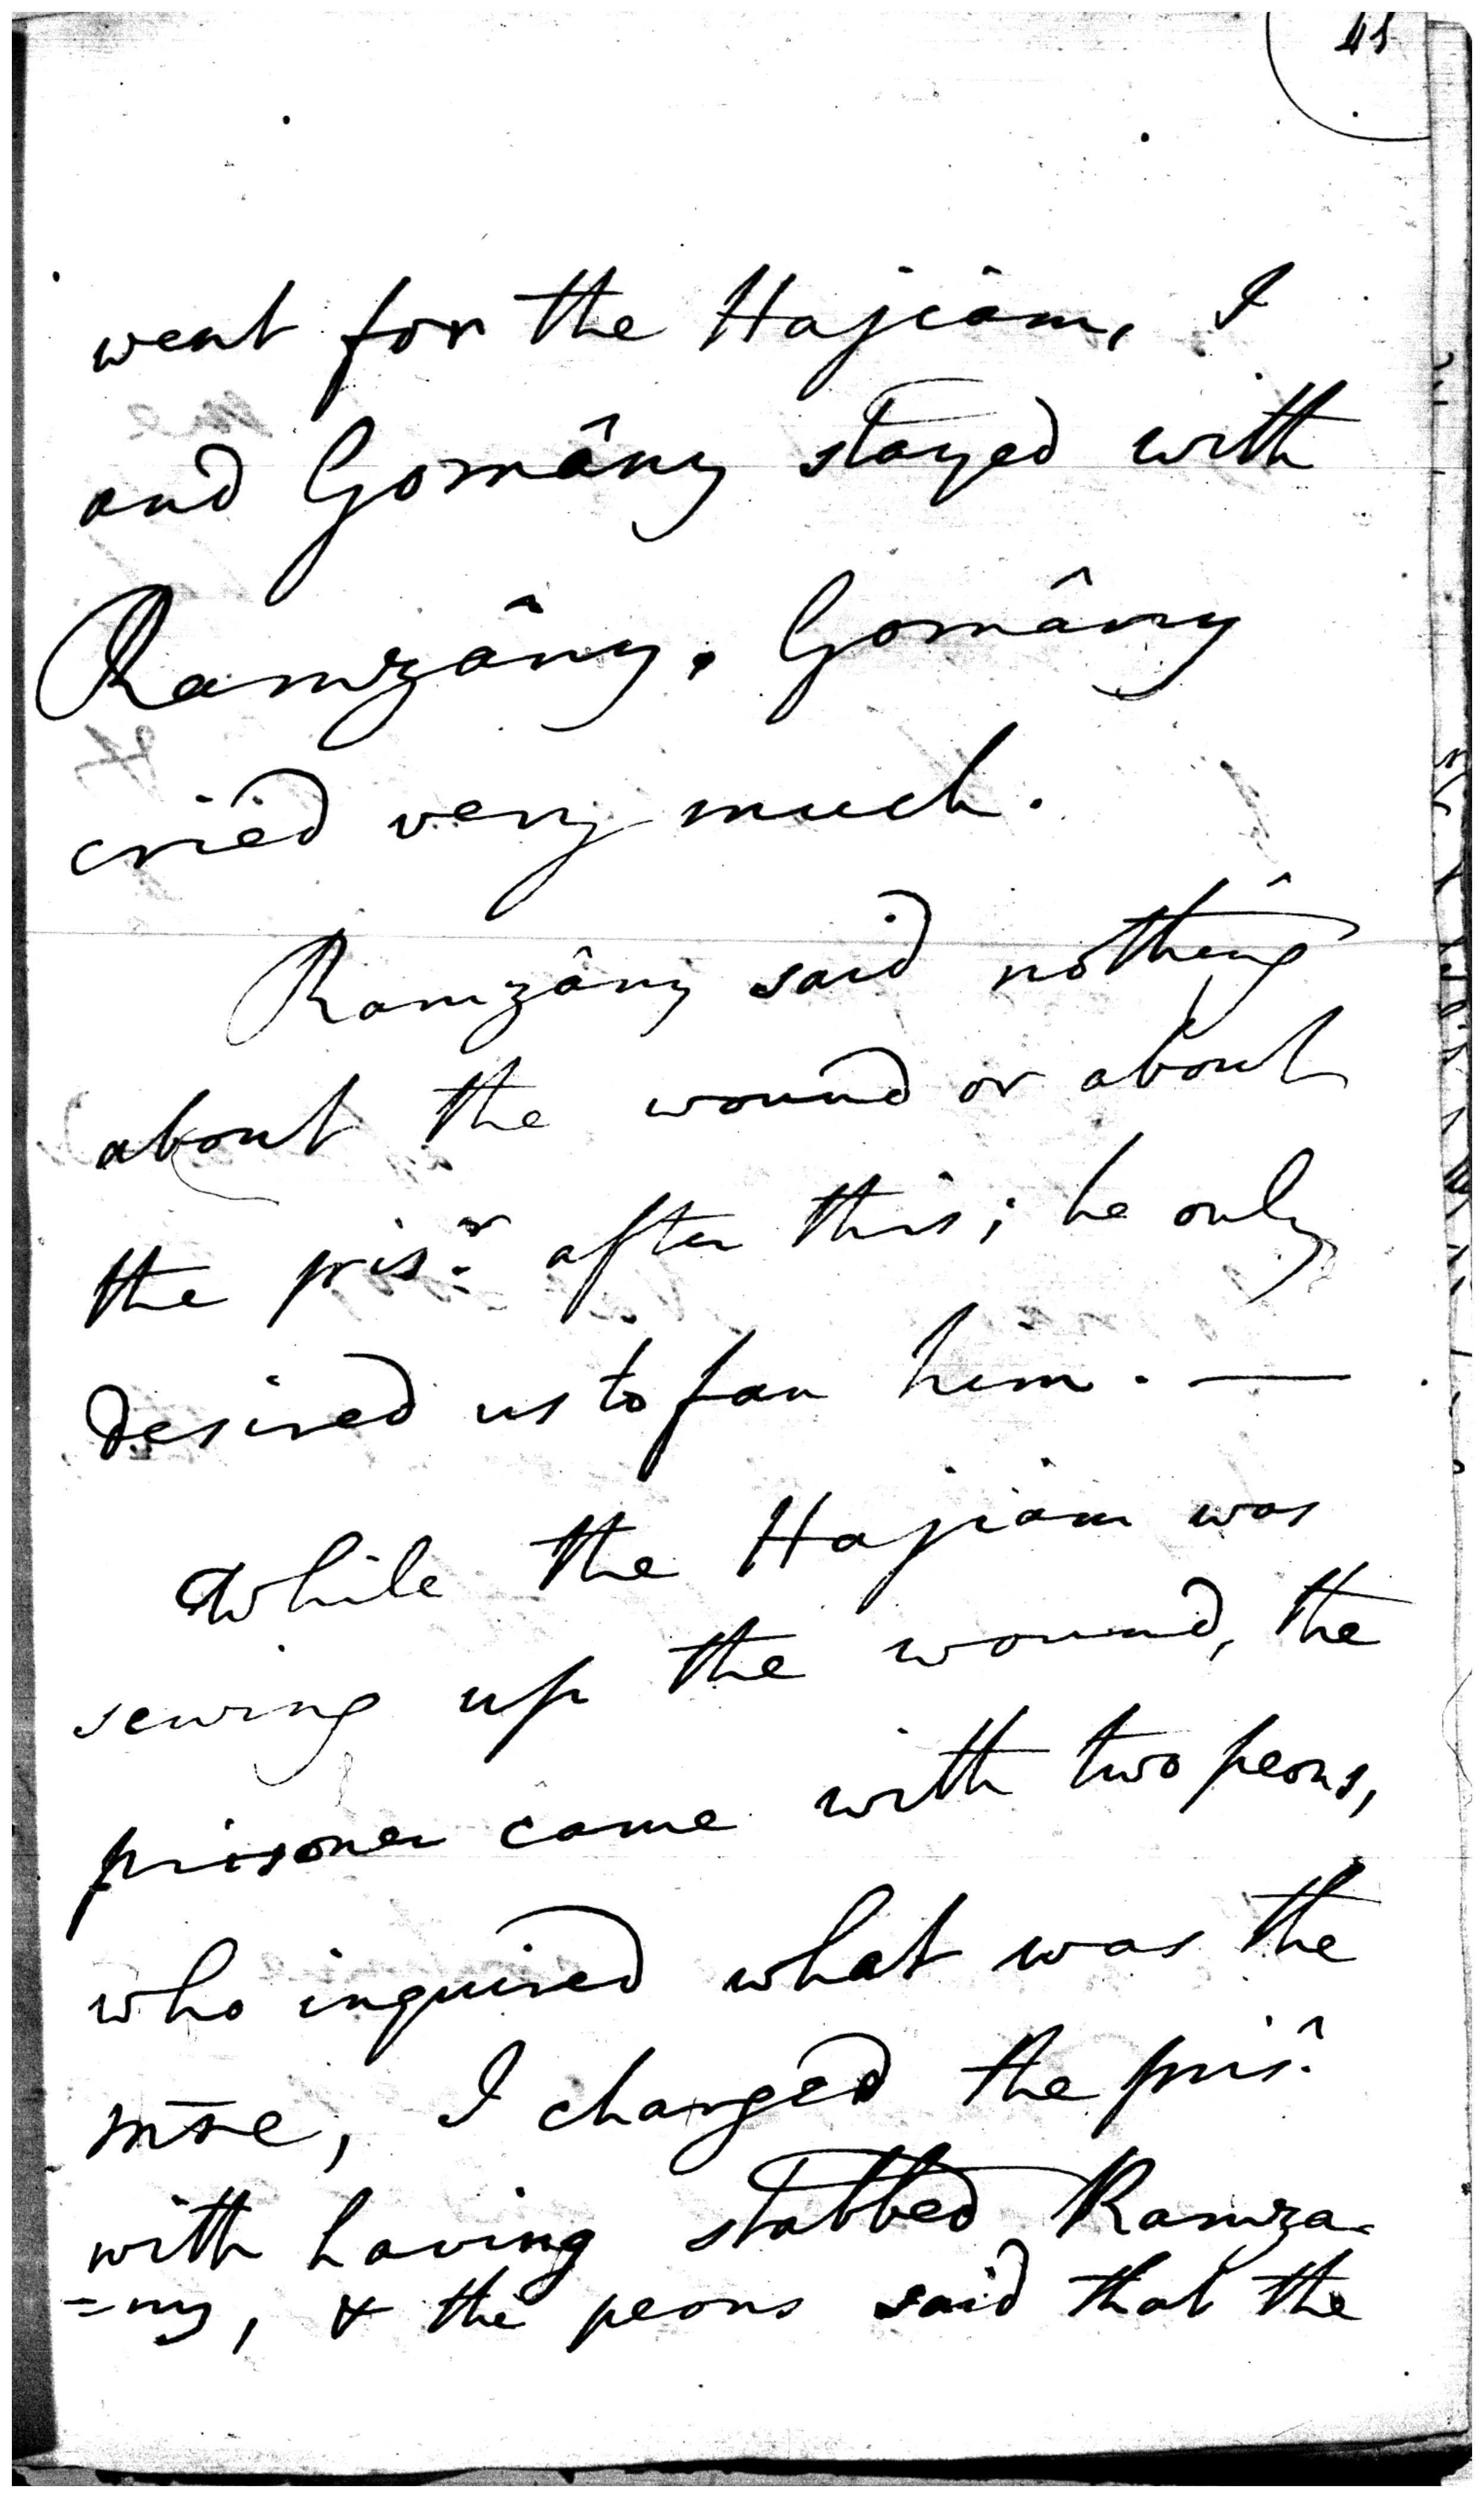 41
went for the Hajiâm, I
and Gomâny stayed with
Ramzâny. Gomâny
cried very much.
Ramzâny said nothing
about the wound or about
the pris.r after this; he only
desired us to fan him. —
While the Hajiâm was
sewing up the wound, the
prisoner came with two peons,
who inquired what was the
, I charged the pris.r
with having stabbed Ramza=
=ny, & the peons said that the